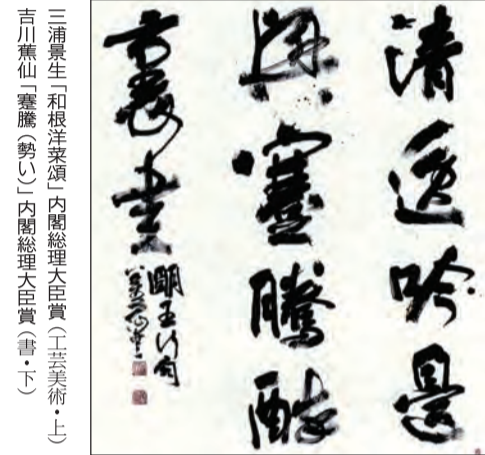 清逸吟邊
興蹇騰酔
裏書
明王行句
三浦景生「和根洋菜頌」内閣総理大臣賞（工芸美術・上）
吉川蕉仙「蹇騰（勢い）」内閣総理大臣賞（書・下）